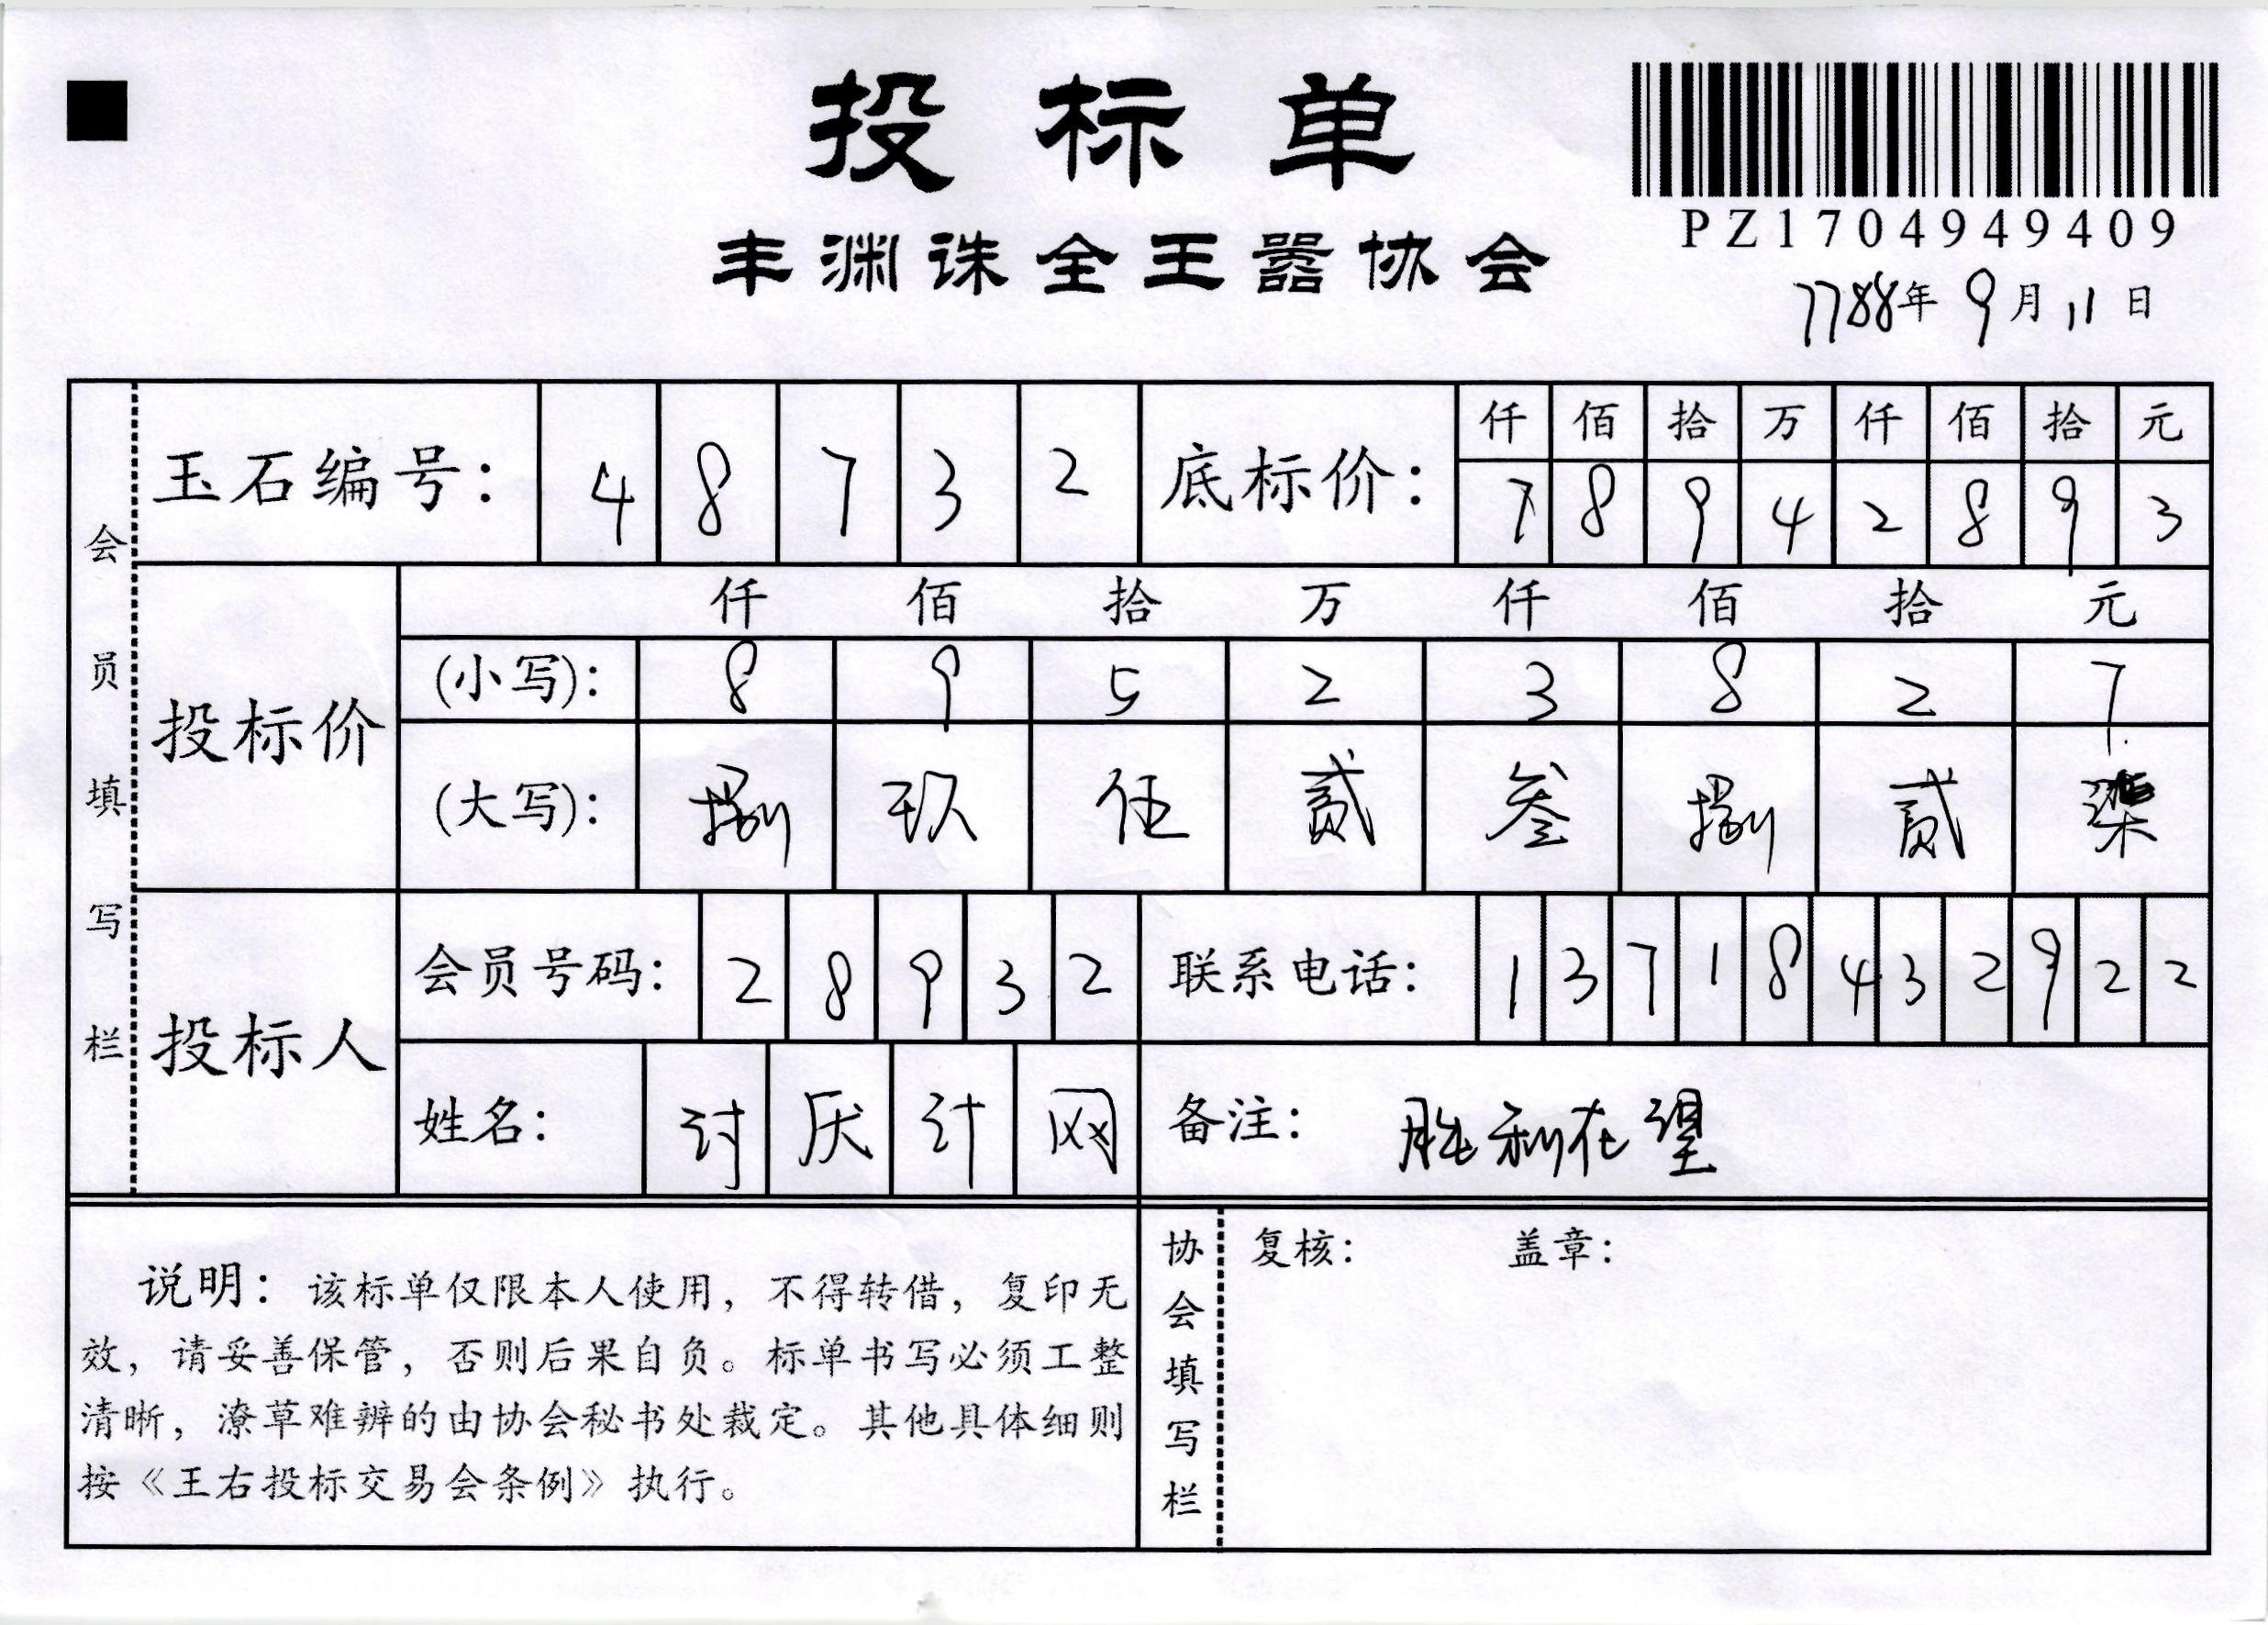 投标单
丰渊诛全王嚣协会
PZ1704949409
7788年9月11日
会员填写栏
玉石编号： 4 8 7 3 2 底标价： 仟 佰 拾 万 仟 佰 拾 元
7 8 9 4 2 8 9 3
投标价
仟 佰 拾 万 仟 佰 拾 元
(小写)： 8 9 5 2 3 8 2 7
(大写)： 捌 玖 伍 贰 叁 捌 贰 柒
投标人
会员号码： 2 8 9 3 2 联系电话： 1 3 7 1 8 4 3 2 9 2 2
姓名： 讨 厌 计 网 备注： 胜利在望
说明：该标单仅限本人使用，不得转借，复印无
效，请妥善保管，否则后果自负。标单书写必须工整
清晰，潦草难辨的由协会秘书处裁定。其他具体细则
按《王右投标交易会条例》执行。
协会填写栏
复核： 盖章：